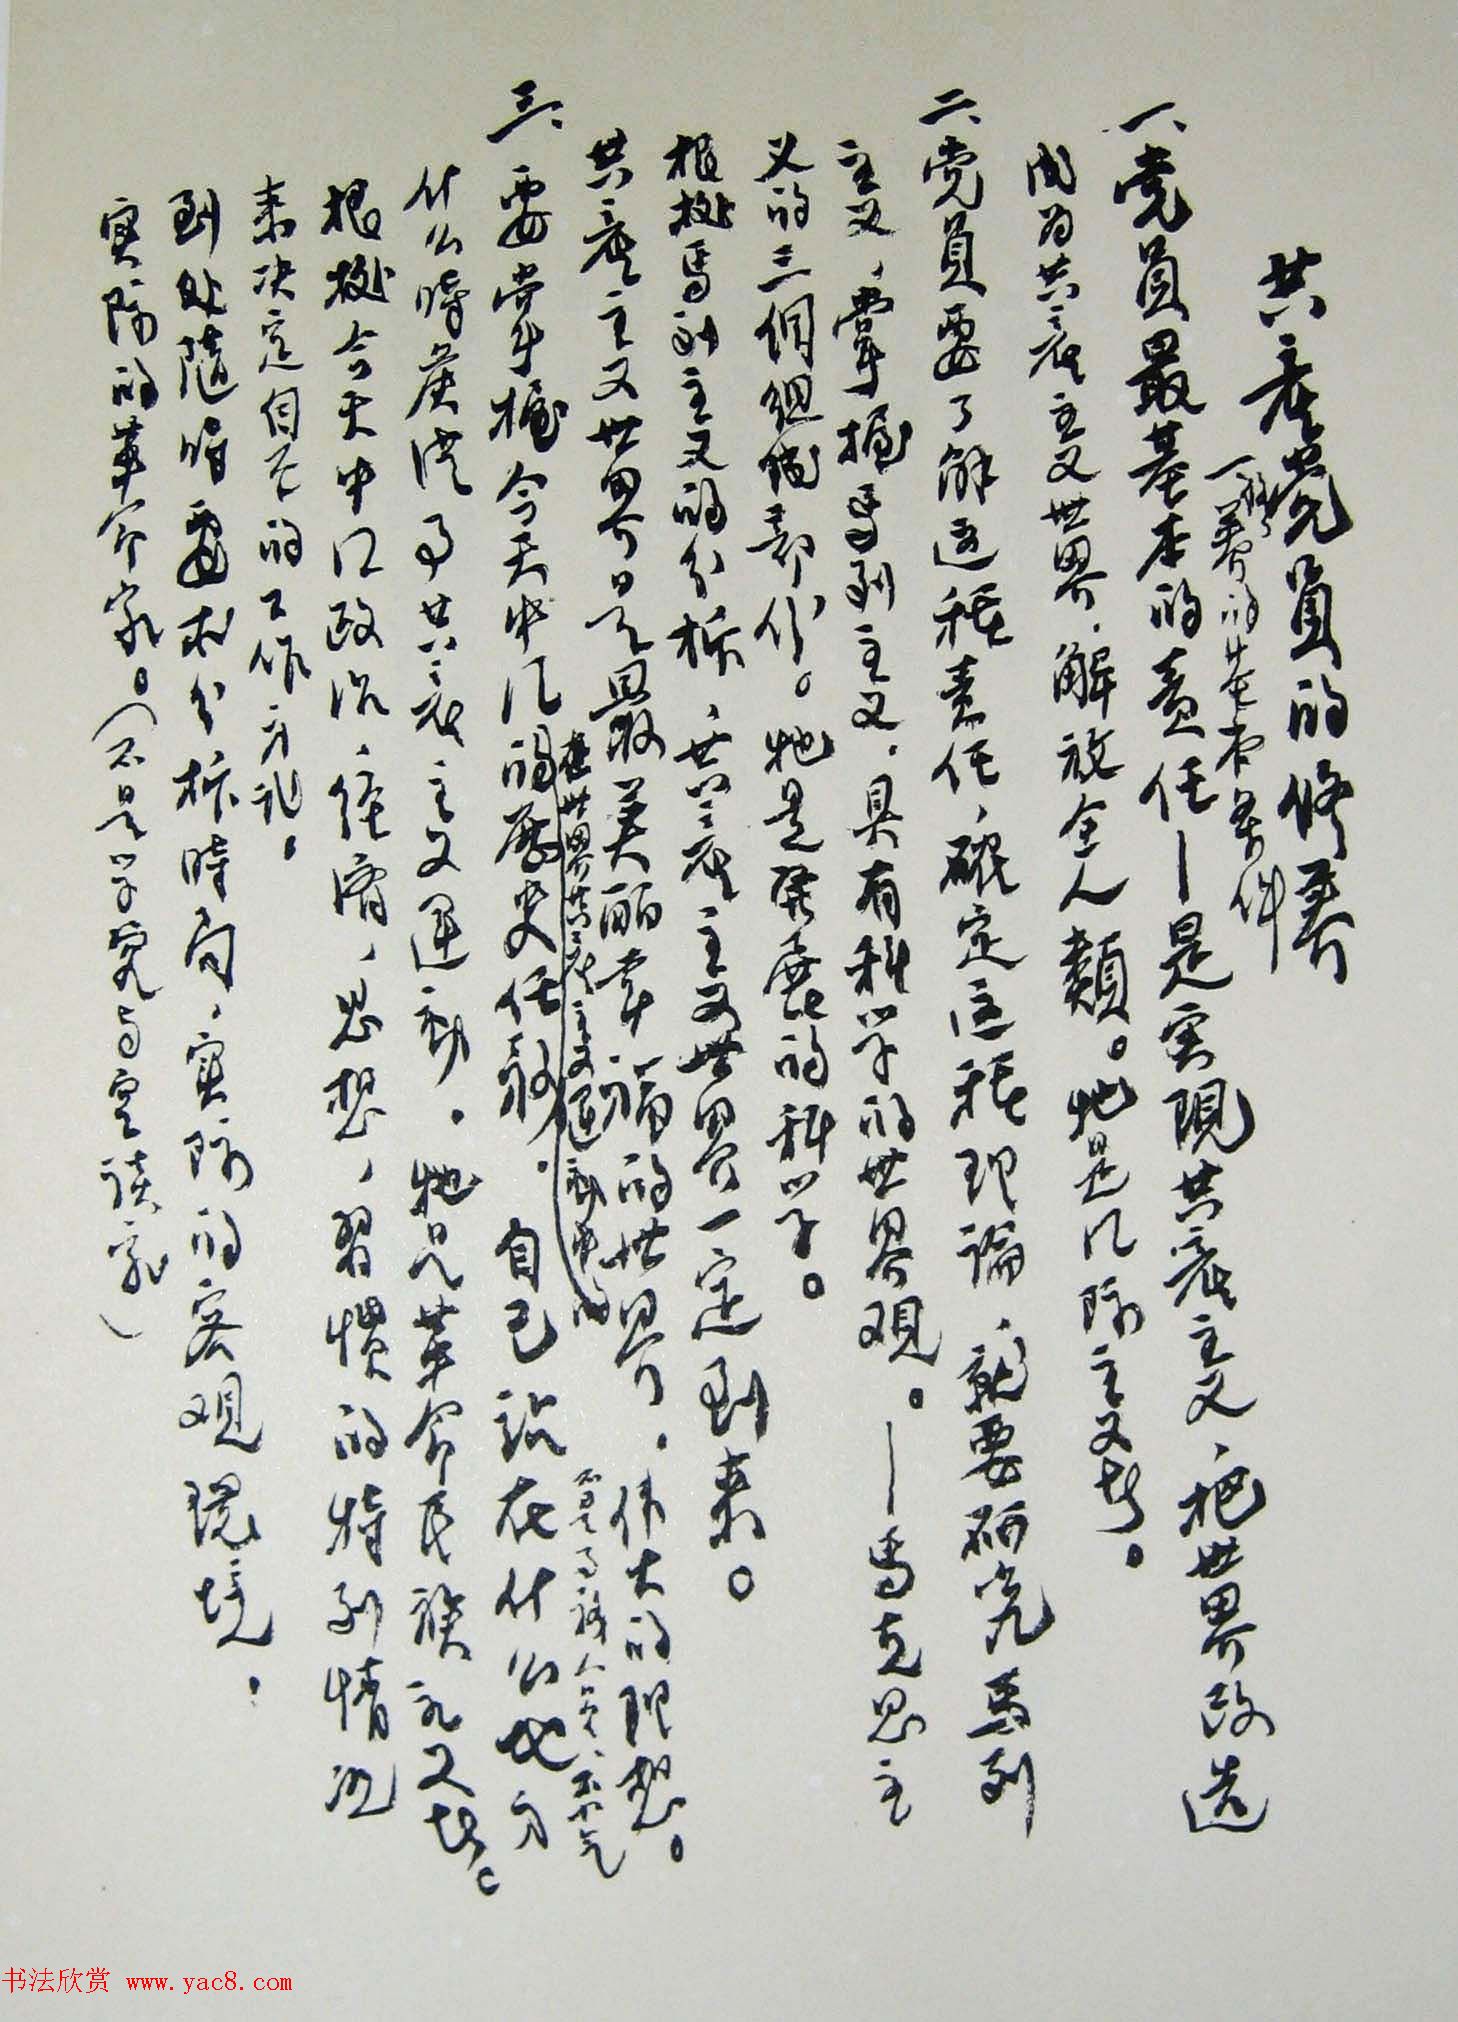 共产党员的修养
一般修养的基本条件
一、党员最基本的责任—是实现共产主义、把世界改造
成为共产主义世界、解放全人类。他是国际主义者。
二、党员要了解这种责任、确定这种理论、就要研究马列
主义、掌握马列主义、具有科学的世界观。—马克思主
义的三个组织部分。他是发展的科学。
根据马列主义的分析、共产主义世界一定到来。
共产主义世界是最美丽幸福的世界、伟大的理想。
三、要掌握今天中国的历史任务、自己站在什么地方
在世界共产主义运动中的
不是
什么时候从事共产主义运动。他是革命民族主义者。
根据今天中国政治、经济、思想、习惯的特别情况
来决定自己的工作方式。
到处随时要求分析时局、实际的客观环境。
实际的革命家。(不是学究与空谈家)
书法欣赏 www.yac8.com